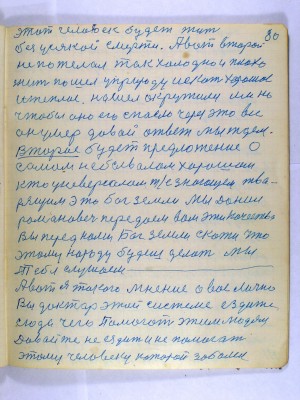 80
этот человек будет жит
без усякой смерти. А вот второй
не потелал так холодно и плохо
жит пошел у природу искат хорошое
и теплое. нашел окружили им но
чтобы оно его спасло через это вс
он умер давай ответ мы ждем.
Второе будет предложение о
самом небывалом хорошом
кто универсалом т/с знающем тва-
рящим это бог земли Мы Данил
романович передаем вам эти качества
Вы перед нами Бог земли скажи что
этому народу будеш делат мы
Тебя слушаем
А вот я такого мнение о вас лично
Вы доктар этой системе ездите
сюда чего Помогат этим людям
Давайте не ездит и не помогат
этому человеку которой заболел